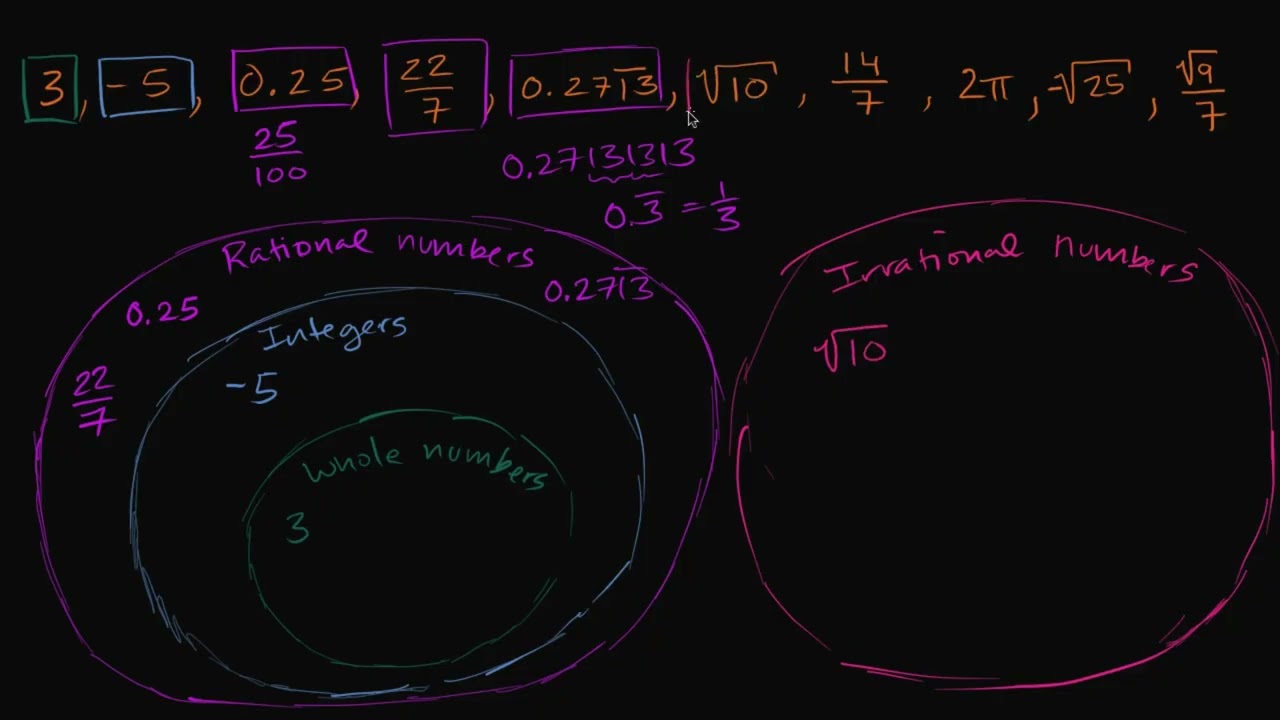 3, -5, 0.25, 22/7, 0.27\overline{13}, √10, 14/7, 2π, -√25, √9/7
25/100
0.27131313
0.\overline{3} = 1/3
Rational numbers
0.25
0.27\overline{13}
22/7
Integers
-5
Whole numbers
3
Irrational numbers
√10